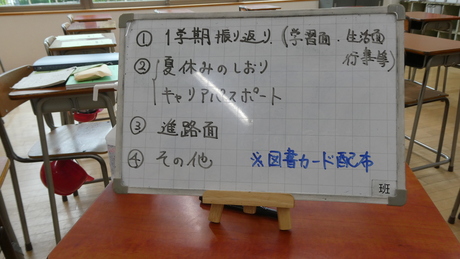 ① 1学期振り返り(学習面・生活面
行事等)
② 夏休みのしおり
キャリアパスポート
③ 進路面
④ その他 ※図書カード配布
班